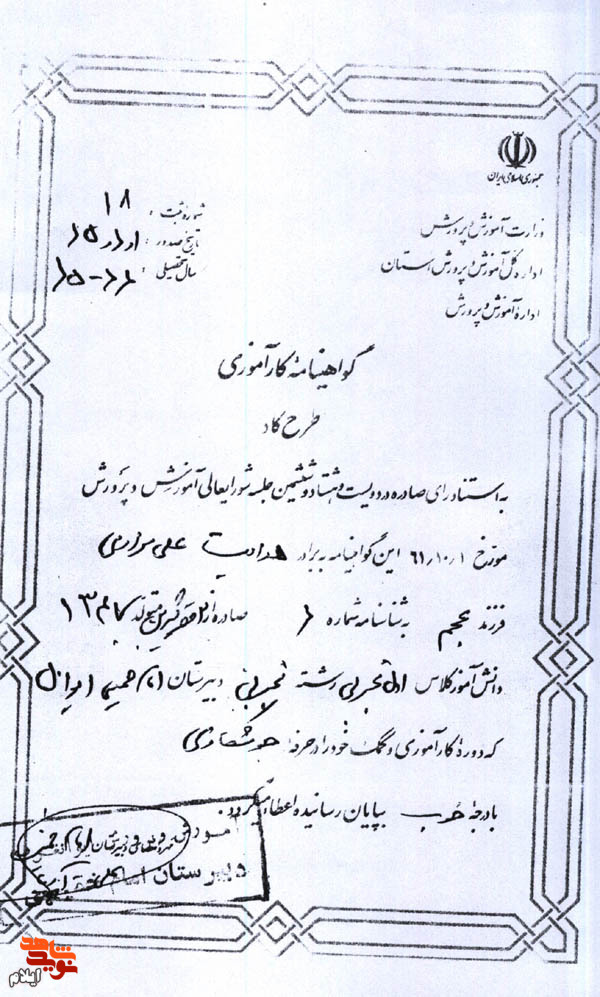 جمهوری اسلامی ایران
شماره ثبت : ۱۸
تاریخ صدور :
سال تحصیلی : ۶۵-۶۴
وزارت آموزش و پرورش
اداره کل آموزش و پرورش استان
اداره آموزش و پرورش
گواهینامه کارآموزی
طرح کاد
به استناد رای صادره در دویست و هشتاد و ششمین جلسه شورایعالی آموزش و پرورش
مورخ ۶۱/۱۰/۱ این گواهینامه به برادر هدایت علی
فرزند نجم به شناسنامه شماره ۶ صادره از
دانش آموز کلاس اول تجربی رشته تجربی دبیرستان امام خمینی
که دوره کارآموزی و کمک خود را در حرفه جوشکاری
با درجه خوب بپایان رسانیده اعطاء میگردد.
آموزش
دبیرستان امام خمینی
نوید شاهد
ایلام